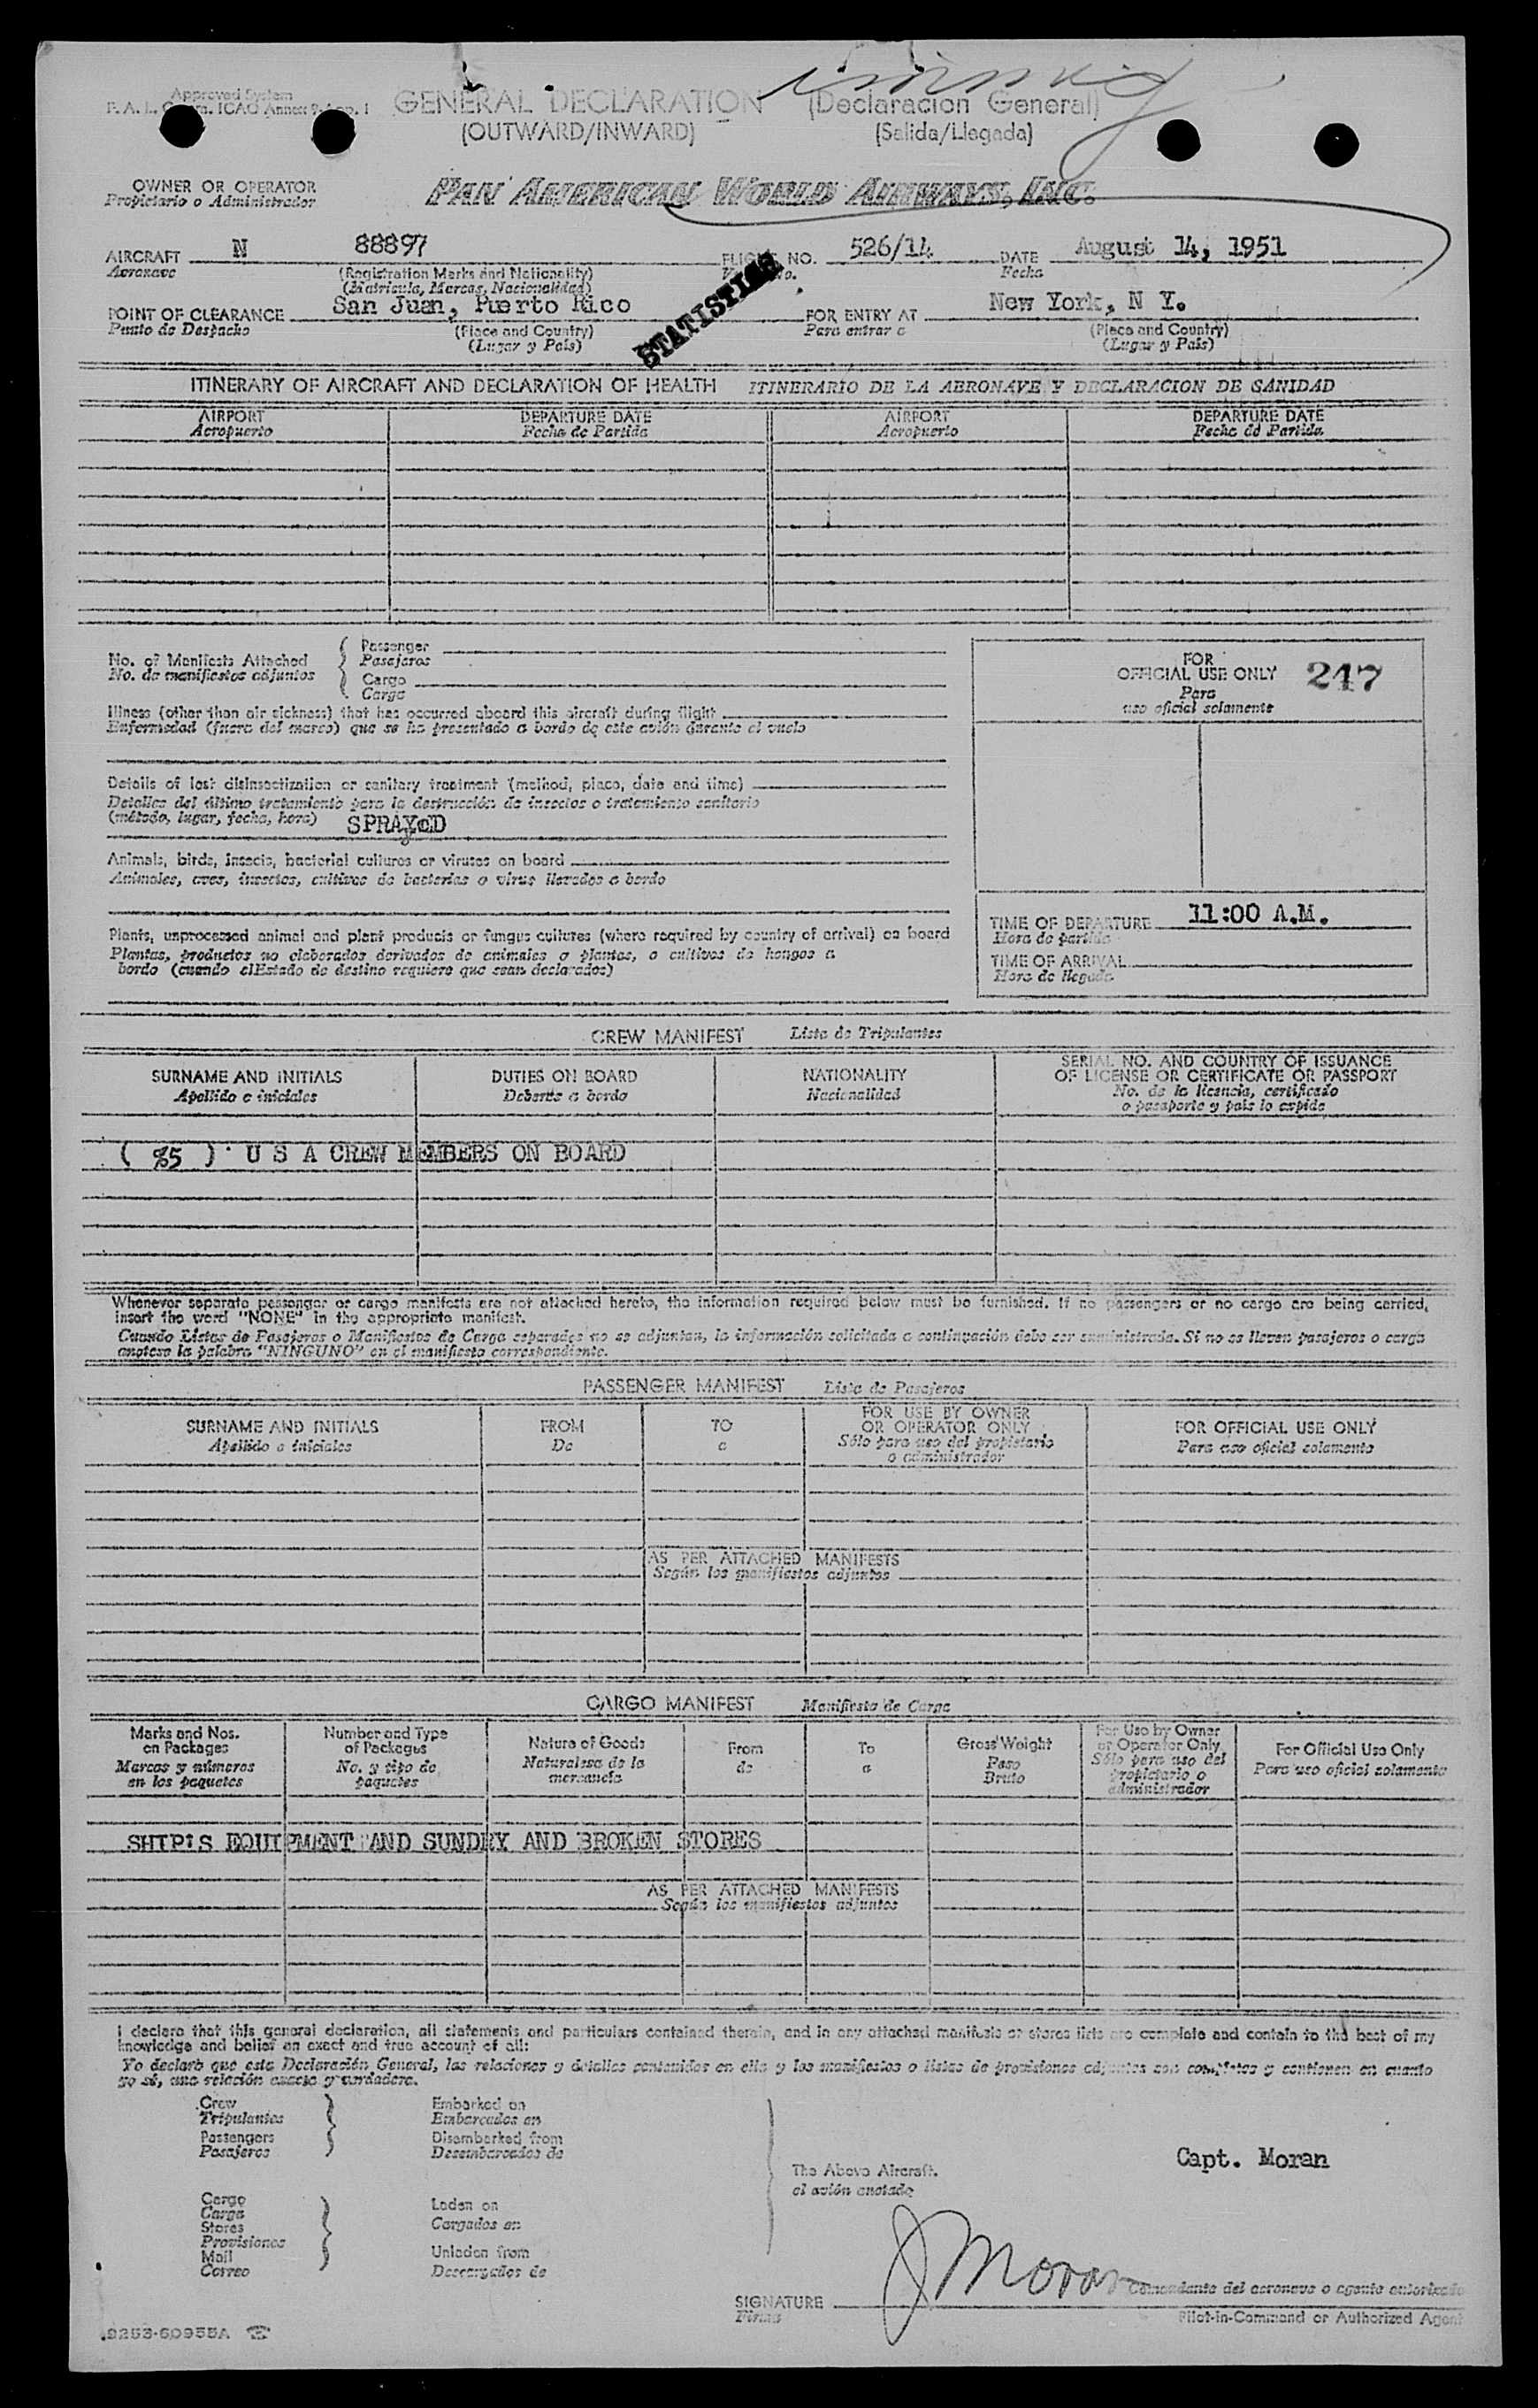 Approved System
P. A. L. Com. ICAO Annex 9-App. 1
GENERAL DECLARATION (Declaracion General)
(OUTWARD/INWARD) (Salida/Llegada)
OWNER OR OPERATOR
Propietario o Administrador
PAN AMERICAN WORLD AIRWAYS, INC.
AIRCRAFT N 88897 FLIGHT NO. 526/14 DATE August 14, 1951
Aeronave (Registration Marks and Nationality) No. Fecha
(Matricula, Marcas, Nacionalidad)
STATISTICS
POINT OF CLEARANCE San Juan, Puerto Rico FOR ENTRY AT New York, N Y.
Punto de Despacho (Place and Country) Para entrar a (Place and Country)
(Lugar y País) (Lugar y País)
ITINERARY OF AIRCRAFT AND DECLARATION OF HEALTH ITINERARIO DE LA AERONAVE Y DECLARACION DE SANIDAD
AIRPORT DEPARTURE DATE AIRPORT DEPARTURE DATE
Aeropuerto Fecha de Partida Aeropuerto Fecha de Partida
No. of Manifests Attached
No. de manifiestos adjuntos
Passenger
Pasajeros
Cargo
Carga
FOR
OFFICIAL USE ONLY 247
Para
uso oficial solamente
Illness (other than air sickness) that has occurred aboard this aircraft during flight
Enfermedad (fuera del mareo) que se ha presentado a bordo de este avión durante el vuelo
Details of last disinsectization or sanitary treatment (method, place, date and time)
Detalles del último tratamiento para la destrucción de insectos o tratamiento sanitario
(método, lugar, fecha, hora) SPRAYED
Animals, birds, insects, bacterial cultures or viruses on board
Animales, aves, insectos, cultivos de bacterias o virus llevados a bordo
TIME OF DEPARTURE 11:00 A.M.
Hora de partida
TIME OF ARRIVAL
Hora de llegada
Plants, unprocessed animal and plant products or fungus cultures (where required by country of arrival) on board
Plantas, productos no elaborados derivados de animales o plantas, o cultivos de hongos a
bordo (cuando el Estado de destino requiere que sean declarados)
CREW MANIFEST Lista de Tripulantes
SURNAME AND INITIALS DUTIES ON BOARD NATIONALITY SERIAL NO. AND COUNTRY OF ISSUANCE
OF LICENSE OR CERTIFICATE OR PASSPORT
Apellido e iniciales Deberes a bordo Nacionalidad No. de la licencia, certificado
o pasaporte y país lo expide
( 85 ) U S A CREW MEMBERS ON BOARD
Whenever separate passenger or cargo manifests are not attached hereto, the information required below must be furnished. If no passengers or no cargo are being carried,
insert the word "NONE" in the appropriate manifest.
Cuando Listas de Pasajeros o Manifiestos de Carga separados no se adjuntan, la información solicitada a continuación debe ser suministrada. Si no se llevan pasajeros o carga
anotese la palabra "NINGUNO" en el manifiesto correspondiente.
PASSENGER MANIFEST Lista de Pasajeros
SURNAME AND INITIALS FROM TO FOR USE BY OWNER
OR OPERATOR ONLY FOR OFFICIAL USE ONLY
Apellido e iniciales De a Sólo para uso del propietario
o administrador Para uso oficial solamente
AS PER ATTACHED MANIFESTS
Según los manifiestos adjuntos
CARGO MANIFEST Manifiesto de Carga
Marks and Nos.
on Packages
Marcas y números
en los paquetes
Number and Type
of Packages
No. y tipo de
paquetes
Nature of Goods
Naturaleza de la
mercancía
From
de
To
a
Gross Weight
Peso
Bruto
For Use by Owner
or Operator Only
Sólo para uso del
propietario o
administrador
For Official Use Only
Para uso oficial solamente
SHIP'S EQUIPMENT AND SUNDRY AND BROKEN STORES
AS PER ATTACHED MANIFESTS
Según los manifiestos adjuntos
I declare that this general declaration, all statements and particulars contained therein, and in any attached manifests or stores lists are complete and contain to the best of my
knowledge and belief an exact and true account of all:
Yo declaro que esta Declaración General, las relaciones y detalles contenidos en ella y los manifiestos o listas de provisiones adjuntos son completos y contienen en cuanto
yo sé, una relación exacta y verdadera.
Crew
Tripulantes
Passengers
Pasajeros
Embarked on
Embarcados en
Disembarked from
Desembarcados de
Cargo
Carga
Stores
Provisiones
Mail
Correo
Laden on
Cargados en
Unladen from
Descargados de
The Above Aircraft.
el avión anotado
Capt. Moran
J Moran
SIGNATURE
Firma
Comandante del aeronave o agente autorizado
Pilot-in-Command or Authorized Agent
9253-60955A